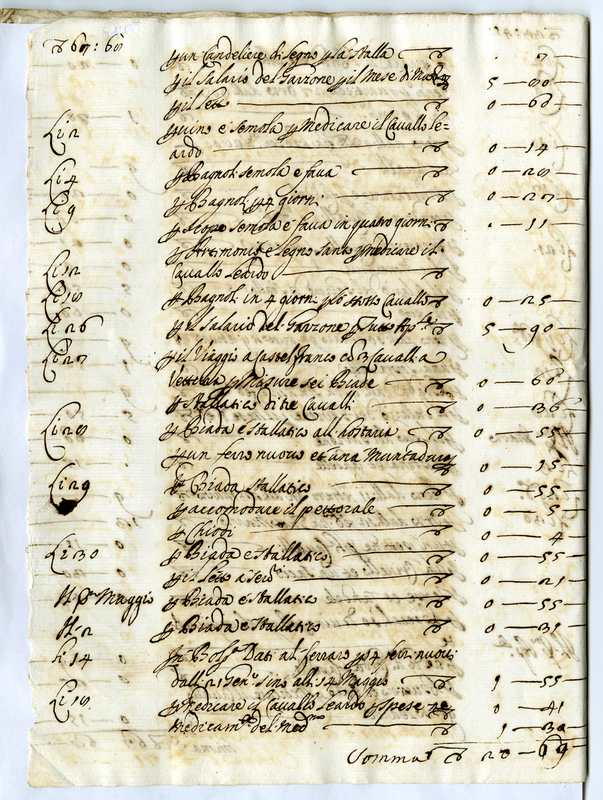 P un Candeliere di Legno p la Stalla
P il Salario del Garzone p il Mese di 5 — 90
P il 0 — 60
Li 2 P uino e semola p Medicare il Cauallo le=
ardo 0 — 14
Li 4 P Bagnol semola e faua 0 — 28
Li 9 P Bagnol p 4 giorni 0 — 27
P semola e faua in quatro giorni — 11
P e Legno santo p medicare il
Li 12 Cauallo leardo
Li 18 P Bagnol in 4 giorni p Cauallo 0 — 25
Li 26 P il Salario del Garzone p tutto Aple 5 — 90
Li 27 P il Viaggio a Castel franco co 3 Caualli a
Vettura p Misure sei Biade 0 — 60
P Stallatico di tre Caualli 0 — 36
Li 28 P Biada e Stallatico all hostaria 0 — 55
P un ferro nuouo et una 0 — 15
Li 29 P Biada Stallatico 0 — 55
P accomodare il pettorale 0 — 5
P Chiodi 0 — 4
Li 30 P Biada e Stallatico 0 — 55
P il 0 — 21
Maggio P Biada e Stallatico 0 — 55
2 P Biada e Stallatico 0 — 39
14 In Bol Dati al ferraro p 14 ferri nuoui
dalli 21 Geno sino alli 14 Maggio 1 — 55
Li 18 P medicare il Cauallo leardo spese 0 — 41
medicamti del 1 — 30
Somma 20 — 69